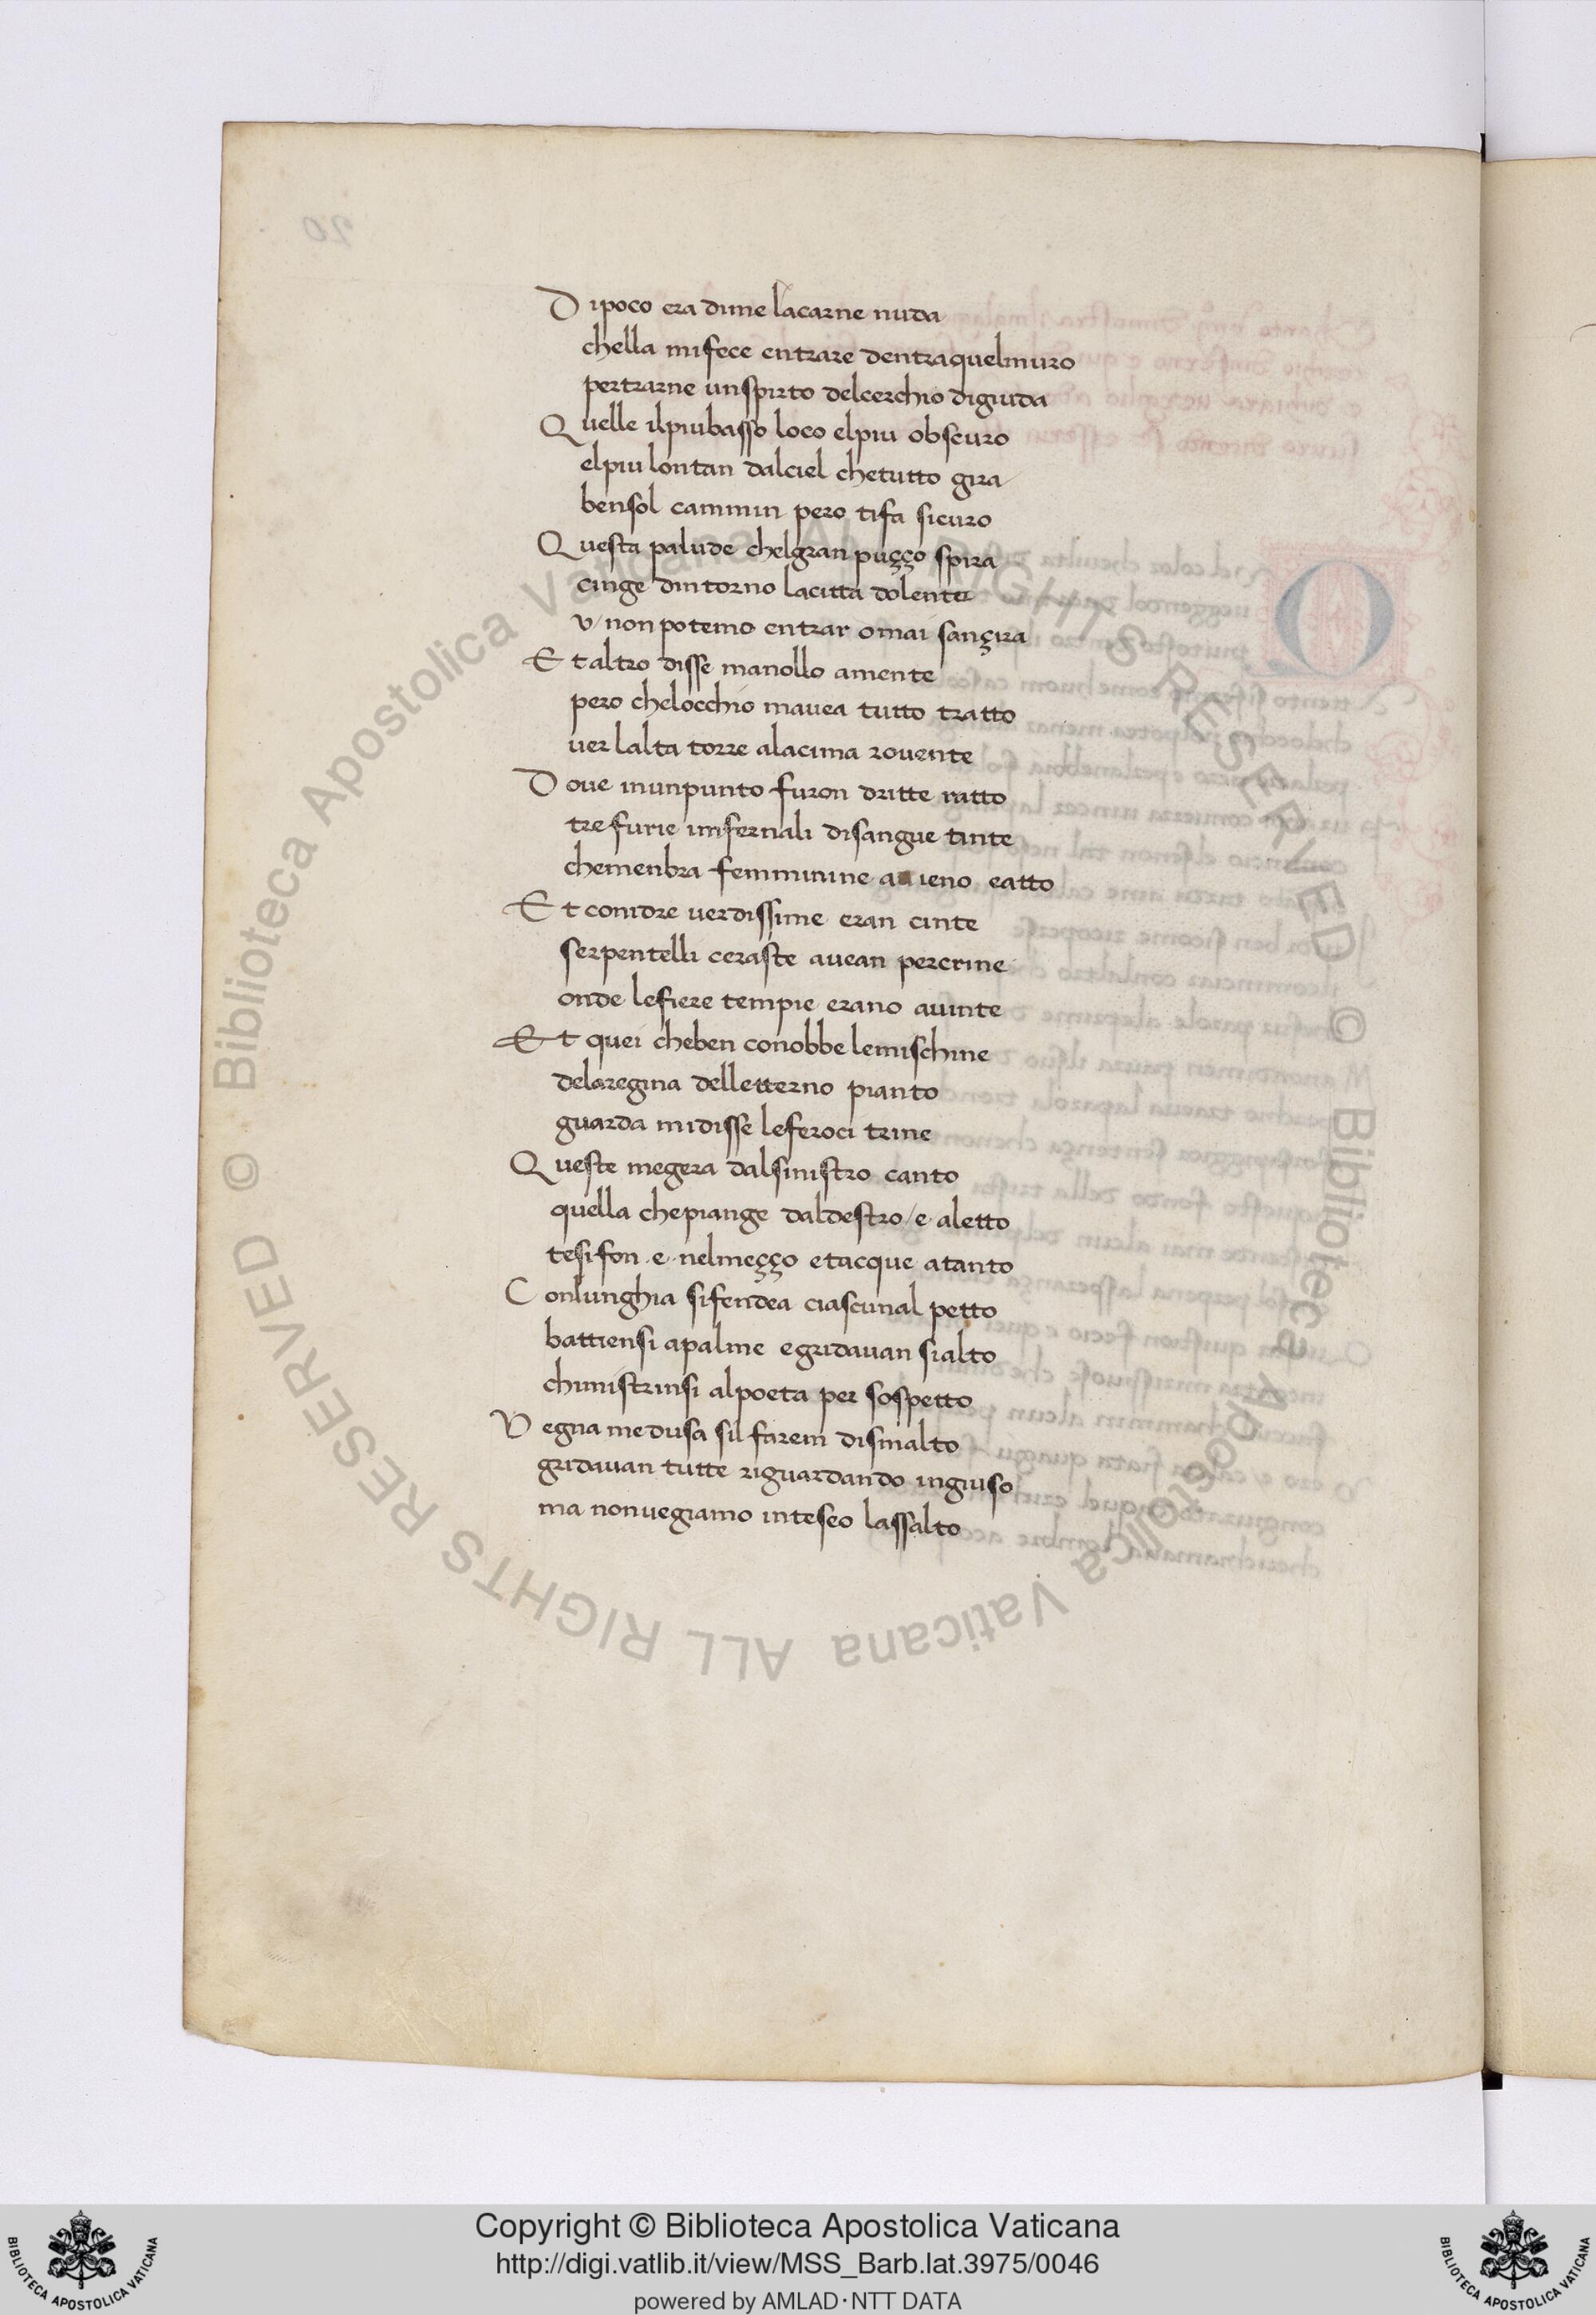 D ipoco era dime lacarne nuda
chella mifece entrare dentraquelmuro
pertrarne unspirto delcerchio digiuda
Q uelle ilpiubasso loco elpiu obscuro
elpiu lontan dalciel chetutto gira
bensol cammin pero tifa sicuro
Q uesta palude chelgran puçço spira
cinge dintorno lacitta dolente
v/ non potemo entrar omai sançira
E t altro disse manollo amente
pero chelocchio mavea tutto tratto
uer lalta torre alacima rovente
D oue inunpunto furon dritte ratto
tre furie infernali disangue tinte
chemenbra femminine a ieno eatto
E t conidre verdissime eran cinte
serpentelli ceraste avean percrine
onde lefiere tempie erano avinte
E t quei cheben conobbe lemischine
delaregina delletterno pianto
guarda midisse leferoci trine
Q ueste megera dalsinistro canto
quella chepiange daldestro/e aletto
tesifon·e·nelmeçço etacque atanto
C onlunghia sifendea ciascunal petto
battiensi apalme egridavan sialto
chimistrinsi alpoeta per sospetto
V egna medusa sil farem dismalto
gridavan tutte riguardando ingiuso
ma nonvegiamo inteseo lassalto
20
© Biblioteca Apostolica Vaticana ALL RIGHTS RESERVED © Biblioteca Apostolica Vaticana ALL RIGHTS RESERVED
Copyright © Biblioteca Apostolica Vaticana
http://digi.vatlib.it/view/MSS_Barb.lat.3975/0046
powered by AMLAD·NTT DATA
BIBLIOTECA APOSTOLICA VATICANA
BIBLIOTECA APOSTOLICA VATICANA